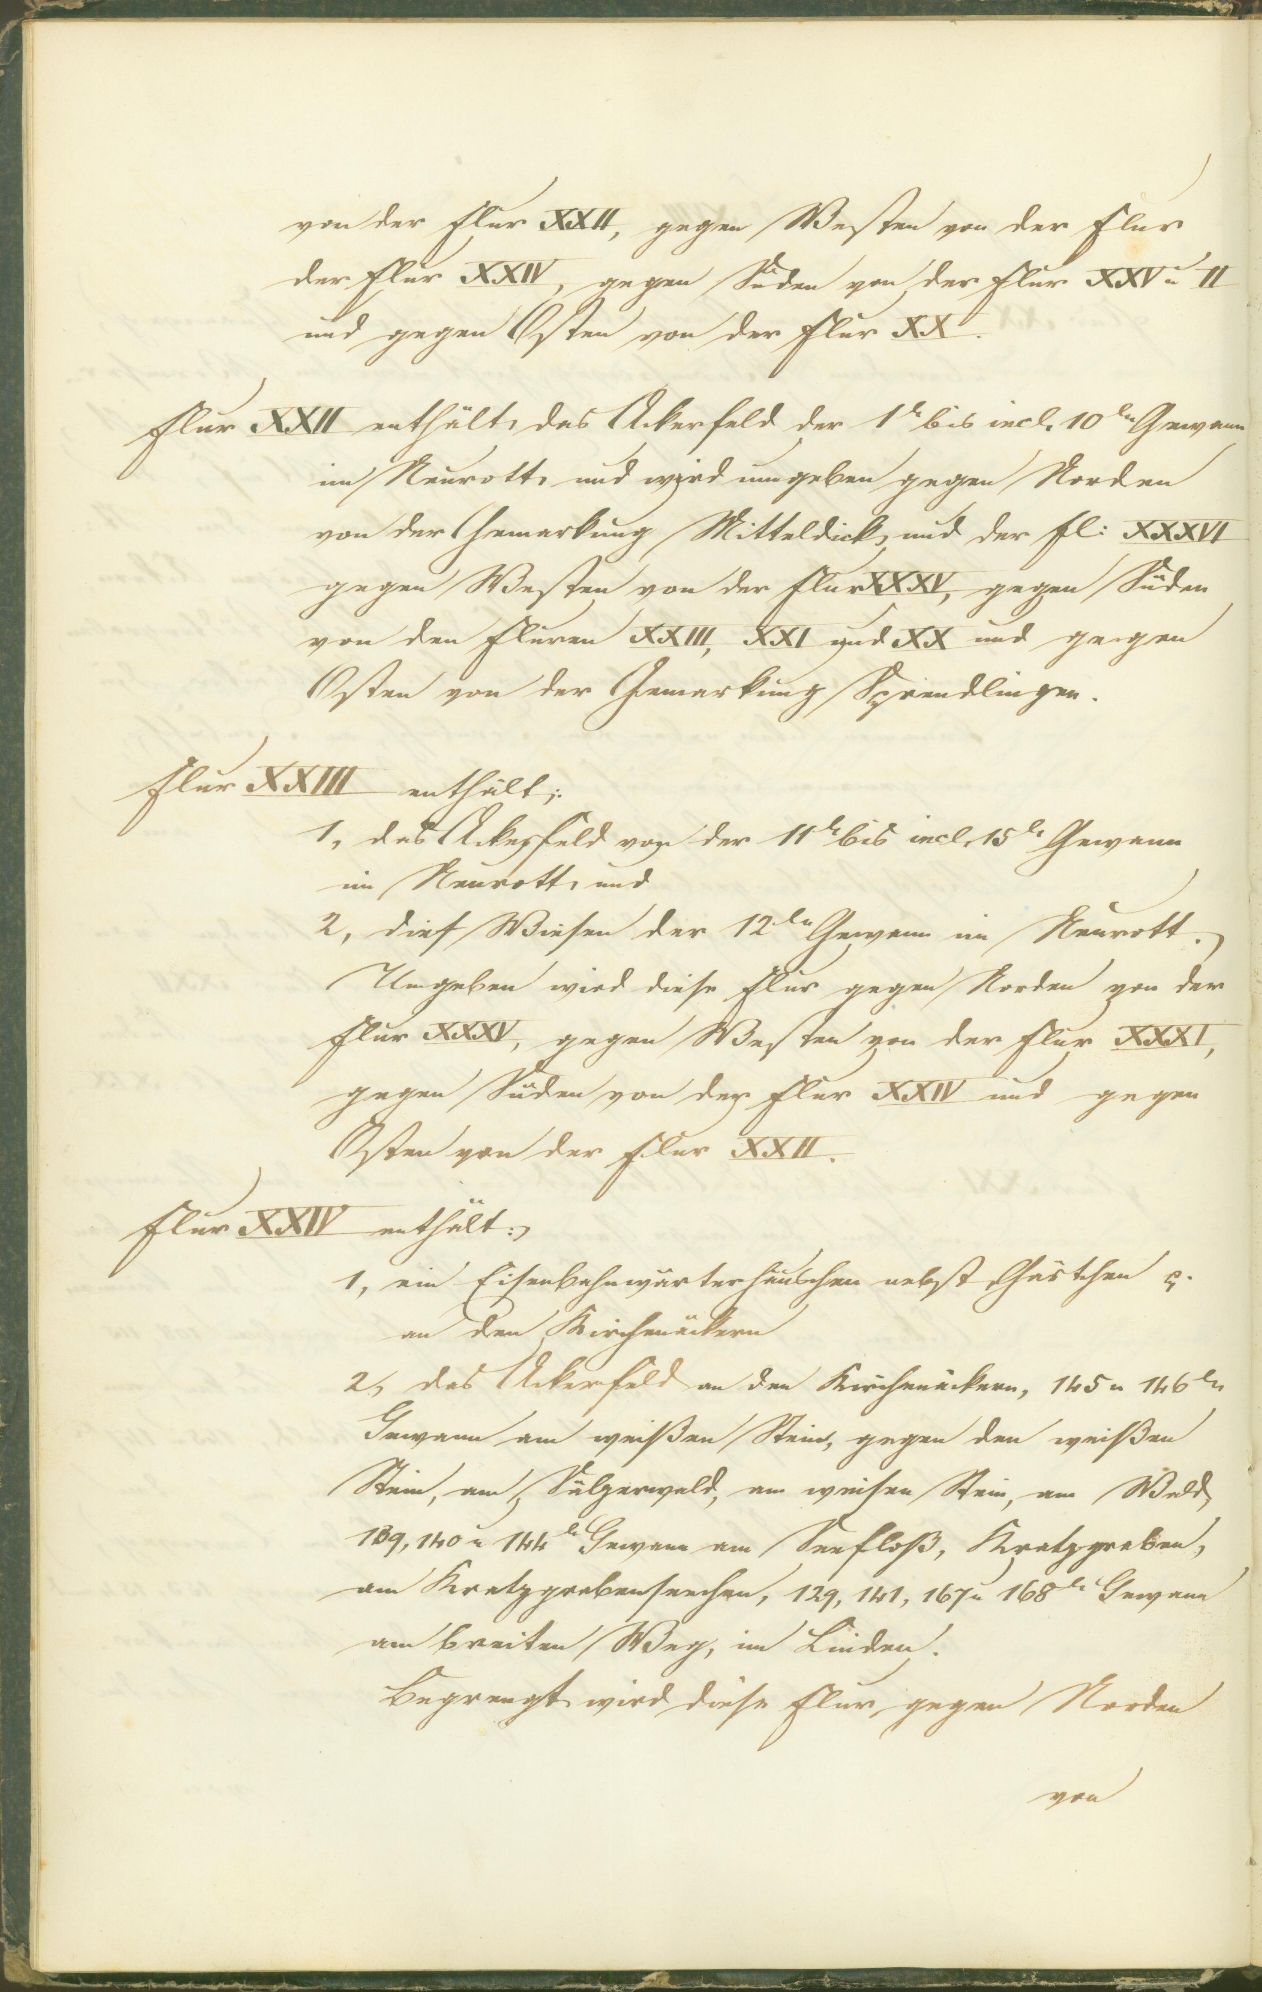 von der Flur XXII, gegen Westen von der Flur
der Flur XXIV, gegen Süden von der Flur XXV u II
und gegen Osten von der Flur XX.
Flur XXII enthält das Ackerfeld der 1te bis incl. 10ten Gewann
im Neurott, und wird umgeben gegen Norden
von der Gemarkung Mitteldick, und der Fl: XXXVI
gegen Westen von der Flur XXXV, gegen Süden
von den Fluren XXIII, XXI und XX und gegen
Osten von der Gemarkung Sprendlingen.
Flur XXIII enthält:
1, das Ackerfeld von der 11te bis incl. 15te Gewann
im Neurott, und
2, die Wiesen der 12ten Gewann im Neurott.
Umgeben wird diese Flur gegen Norden von der
Flur XXXV, gegen Westen von der Flur XXXI,
gegen Süden von der Flur XXIV und gegen
Osten von der Flur XXII.
Flur XXIV enthält:
1, ein Eisenbahnwärterhäuschen nebst Gärtchen
an den Kirchenäckern
2, das Ackerfeld an den Kirchenäckern, 145 u 146ten
Gewann am weißen Stein, gegen den weißen
Stein, am Sülzerwald, am weisen Stein, am Wald,
139, 140 u 144te Gewann am Seefloß, Kratzgraben,
am Kratzgrabenseechen, 129, 141, 167 u 168te Gewann
am breiten Weg, im Linden.
Begrenzt wird diese Flur gegen Norden
von